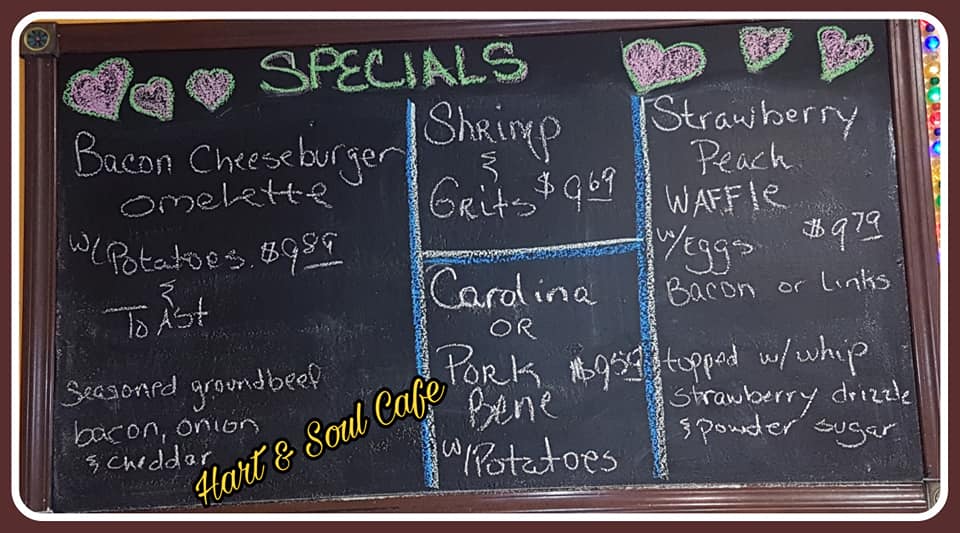 SPECIALS
Bacon Cheeseburger
omelette
w/Potatoes. $9.89
&
ToAst
seasoned groundbeef
bacon, onion
& cheddar
Shrimp
&
Grits $9.69
Carolina
OR
Pork $9.59
Bene
w/Potatoes
Strawberry
Peach
WAFFLE
w/Eggs $9.79
Bacon or Links
topped w/ whip
strawberry drizzle
& powder sugar
Hart & Soul Cafe